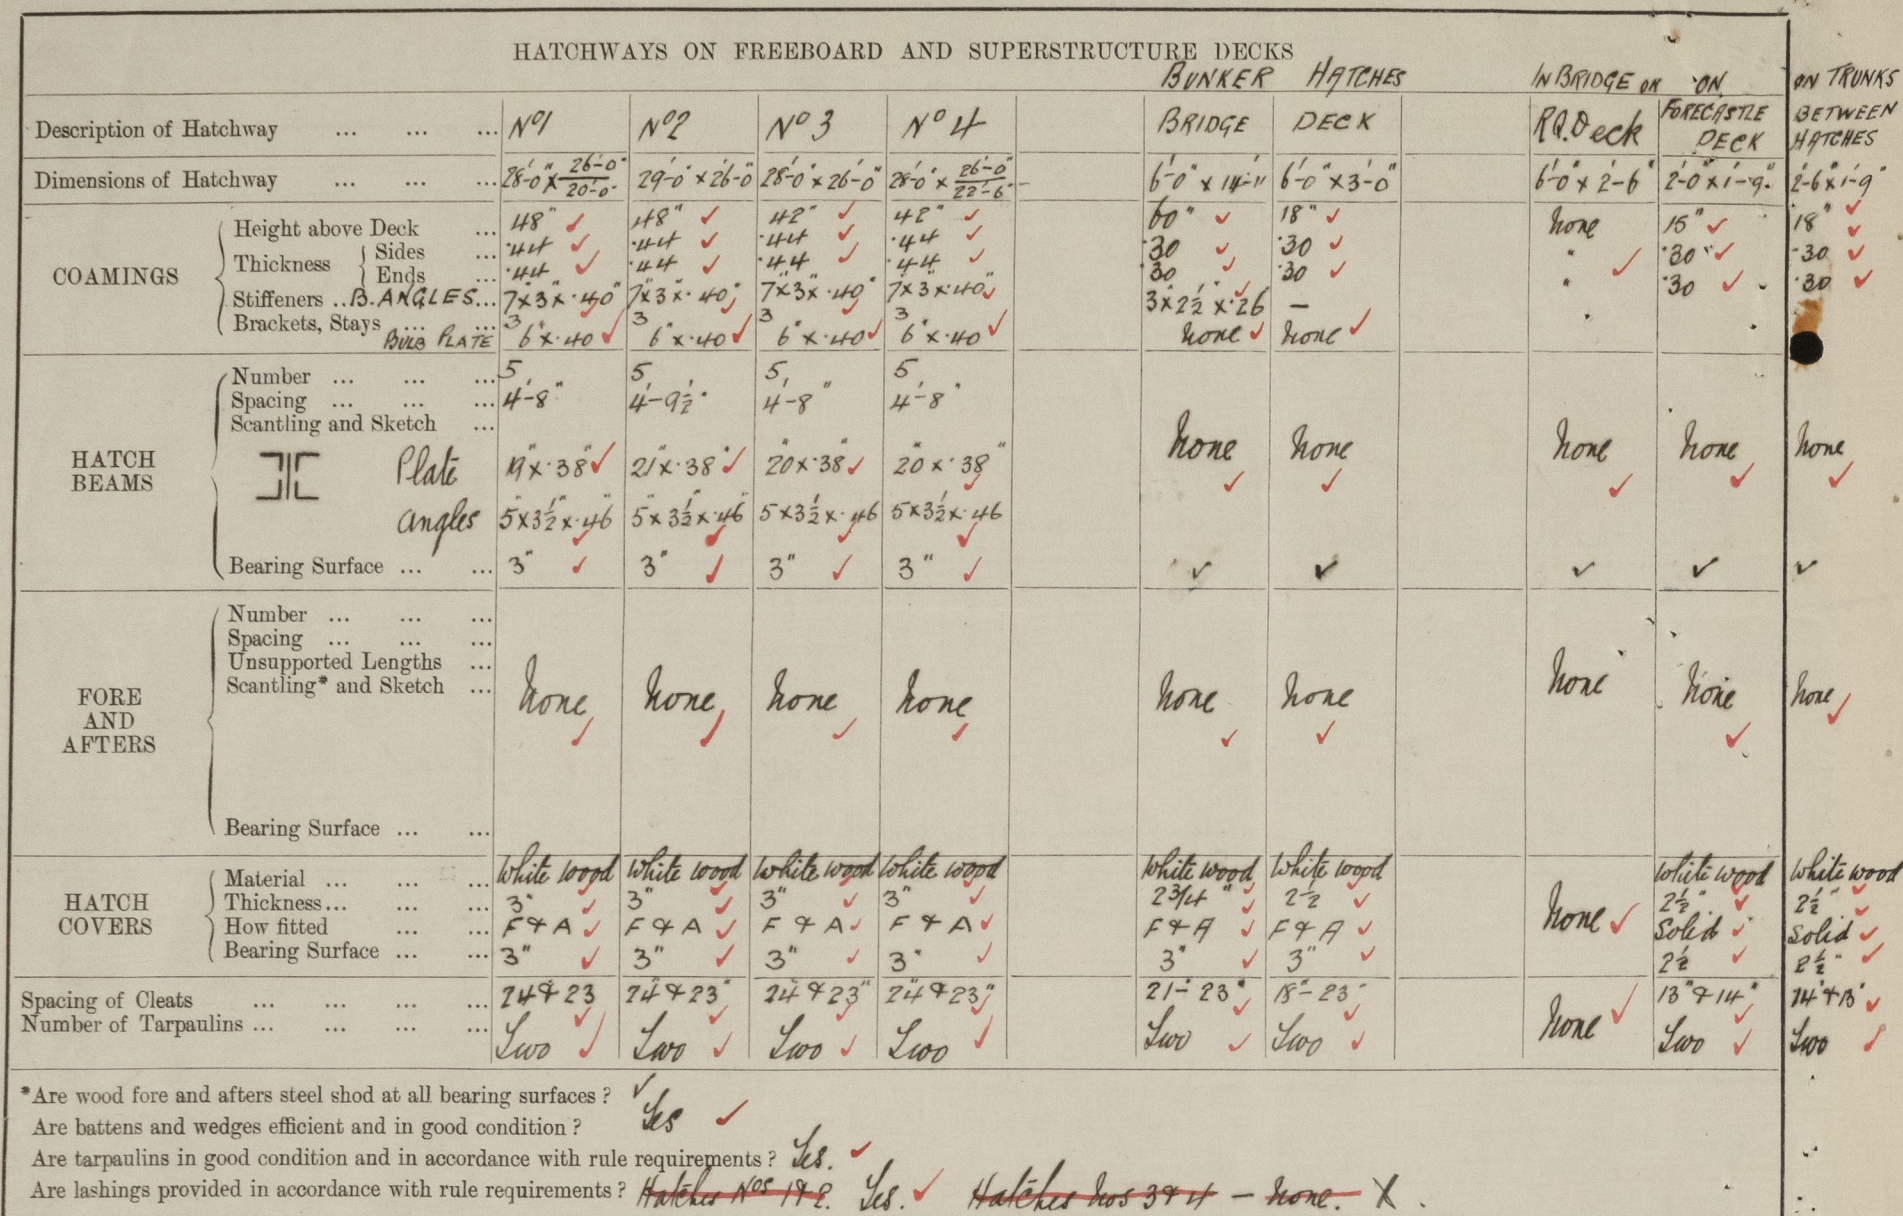 HATCHWAYS ON FREEBOARD AND SUPERSTRUCTURE DECKS
BUNKER HATCHES IN BRIDGE OR ON ON TRUNKS
Description of Hatchway ... ... ... No1 No2 No 3 No 4 BRIDGE DECK R.Q. Deck FORECASTLE DECK BETWEEN HATCHES
Dimensions of Hatchway ... ... ... 28'-0" x 26'-0"/20'-0" 29'-0" x 26'-0" 28'-0" x 26'-0" 28'-0" x 26'-0"/22'-6" 6'-0" x 14'-11 6'-0" x 3'-0" 6'-0" x 2'-6" 2'-0" x 1'-9" 2'-6" x 1'-9"
COAMINGS
Height above Deck ... 48" 48" 42" 42" 60" 18" None 15" 18"
Thickness { Sides ... .44 .44 .44 .44 .30 .30 " .30 .30
Ends ... .44 .44 .44 .44 .30 .30 " .30 .30
Stiffeners .. B. ANGLES... 7" x 3" x .40" 7" x 3" x .40" 7" x 3" x .40" 7" x 3" x .40" 3 x 2½ x .26 —
Brackets, Stays ... ... 3 3 3 3
BULB PLATE 6" x .40 6" x .40 6" x .40 6" x .40 None None
HATCH BEAMS
Number ... ... ... 5 5 5 5
Spacing ... ... ... 4'-8" 4'-9½" 4'-8" 4'-8"
Scantling and Sketch ...
None None None None None
Plate 19" x .38" 21" x .38" 20" x .38" 20" x .38"
Angles 5" x 3½" x .46" 5" x 3½" x .46" 5 x 3½ x .46 5 x 3½ x .46
Bearing Surface ... ... 3" 3" 3" 3"
FORE AND AFTERS
Number ... ... ...
Spacing ... ... ...
Unsupported Lengths ...
Scantling* and Sketch ... None None None None None None None None None
Bearing Surface ... ...
HATCH COVERS
Material ... ... ... White wood White wood White wood White wood White wood White wood White wood White wood
Thickness... ... ... 3" 3" 3" 3" 2 3/4" 2½ 2½" 2½"
How fitted ... ... F & A F & A F & A F & A F & A F & A None Solid Solid
Bearing Surface ... ... 3" 3" 3" 3" 3" 3" 2½ 2½"
Spacing of Cleats ... ... ... ... 24 & 23 24 & 23" 24 & 23" 24" & 23" 21 - 23" 18" - 23" None 13" & 14" 14" & 13"
Number of Tarpaulins ... ... ... ... Two Two Two Two Two Two Two Two
*Are wood fore and afters steel shod at all bearing surfaces ?
Are battens and wedges efficient and in good condition ? Yes
Are tarpaulins in good condition and in accordance with rule requirements ? Yes.
Are lashings provided in accordance with rule requirements ? Hatches Nos 1 & 2. Yes. Hatches Nos 3 & 4 — None. X.